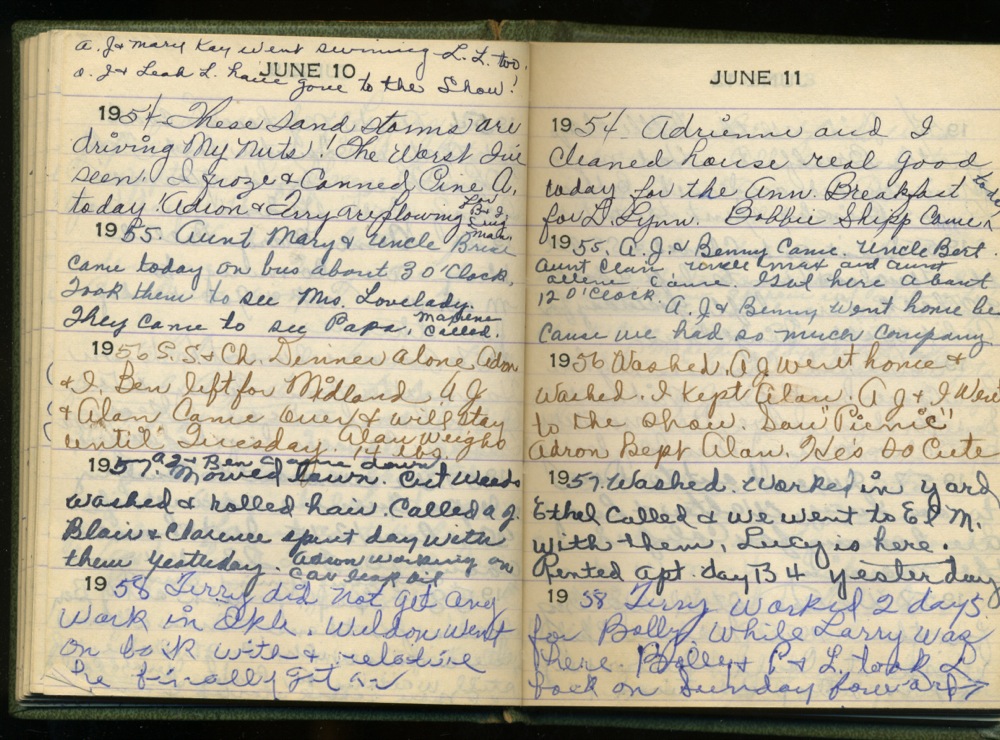 a. J & Mary Kay went swimming - L. L. too.
JUNE 10
a. J & Leah L. have gone to the Show!
1954 These sand storms are
driving My Nuts! The Worst I've
seen. I froze & Canned Pine A.
today! Adron & Terry are plowing for
B & J
1955. Aunt Mary & Uncle
came today on bus about 3 O'Clock.
Took them to see Mrs. Lovelady.
They came to see Papa. Maxene
Called.
1956 S. S & Ch. Dinner alone Adron
& I. Ben left for Midland A J
& Alan Came over & will stay
until Tuesday. Alan weighs
14 lbs.
1957. A J & Ben came down
Mowed lawn. Cut Weeds
washed & rolled hair. Called a J.
Blair & Clarence spent day with
them yesterday. Adron working on
Car leaks oil
1958 Terry did not get any
work in Okla. Weldon went
on back with & relative
He finally got
JUNE 11
1954 Adrienne and I
cleaned house real good
today for the Ann. Breakfast
for L. Lynn. Bobbie Shipp Came today
1955. A. J. & Benny Came. Uncle Bert
Aunt Clean, Uncle Max and Aunt
allene Came. Got here about
12 O'Clock.
A. J & Benny went home be
cause we had so much company.
1956 Washed. A J went home &
washed. I kept Alan. A J & I Went
to the show. Saw "Picnic"
Adron Kept Alan. He's so Cute
1957. Washed. Worked in yard
Ethel Called & we went to El M.
with them, Lucy is here.
Rented apt. day B 4 yesterday
1958 Terry Worked 2 days
for Bolly while Larry was
here. Bolly & P & L. took L
back on Sunday forward →